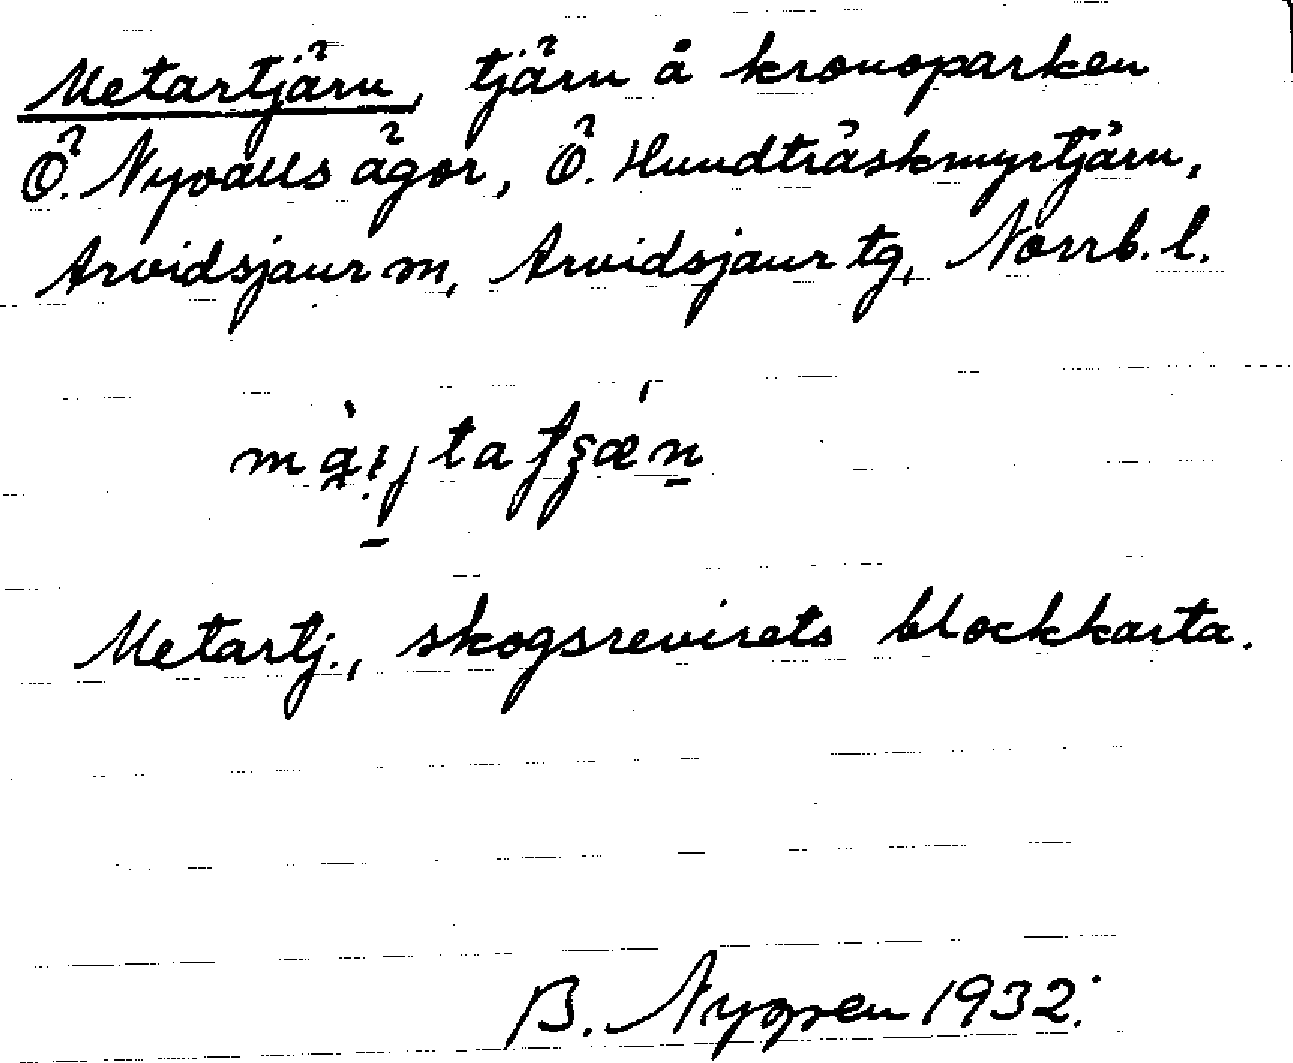 Metartjärn, tjärn å kronoparken
Ö. Nyvalls ägor, Ö. Hundträskmyrtjärn,
Arvidsjaur sn, Arvidsjaur tg, Norrb. l.
Metartj., skogsrevirets blockkarta.
B. Nygren 1932.